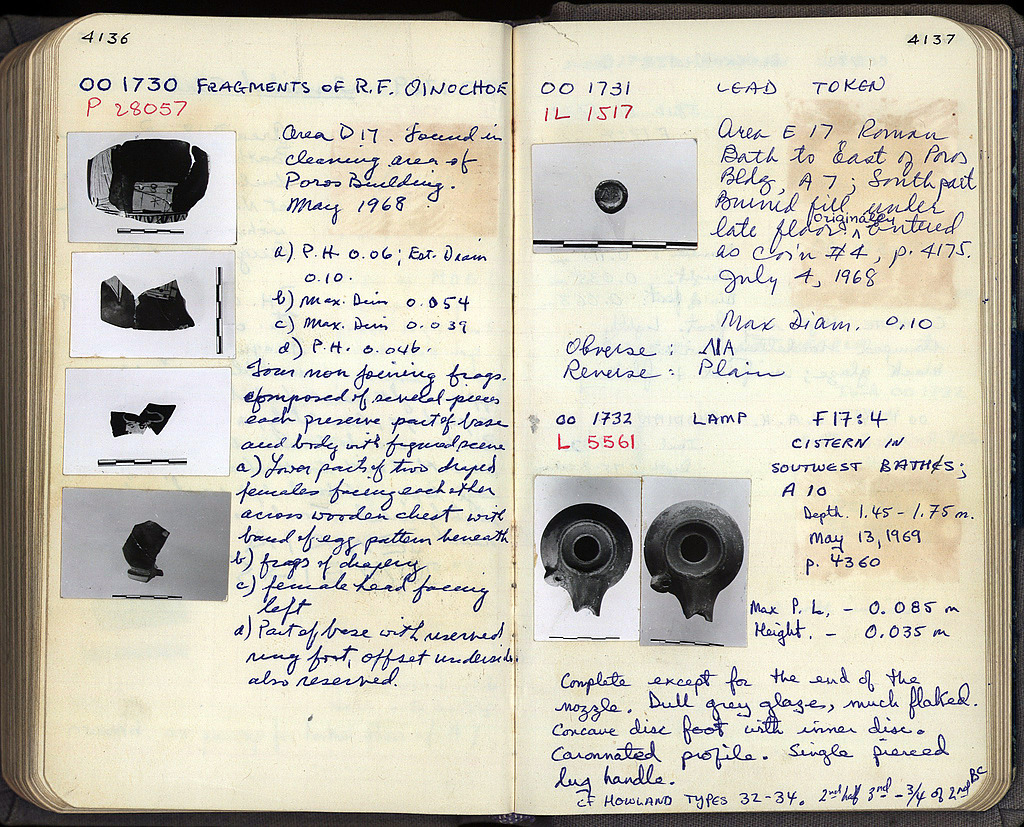 4136
OO 1730 FRAGMENTS OF R.F. OINOCHOE
P 28057
Area D 17. Found in
cleaning area of
Poros Building.
May 1968
a) P.H. 0.06; Est. Diam
0.10.
b) Max. Dim 0.054
c) Max. Dim 0.039
d) P.H. 0.046.
Four non joining frags.
composed of several pieces
each preserve part of base
and body with figured scene
a) Lower parts of two draped
females facing each other
across wooden chest with
band of egg pattern beneath
b) frags of drapery
c) female head facing
left
d) Part of base with reserved
ring foot, offset underside
also reserved.
4137
OO 1731 LEAD TOKEN
IL 1517
Area E 17 Roman
Bath to East of Poros
Bldg, A 7; South part
Burned fill under
late floor. originally entered
as coin #4, p. 4175.
July 4, 1968
Max Diam. 0.10
Obverse: ΛΙΑ
Reverse: Plain
OO 1732 LAMP F17:4
L 5561
CISTERN IN
SOUTHWEST BATHS;
A 10
Depth. 1.45 - 1.75 m.
May 13, 1969
p. 4360
Max P. L. - 0.085 m
Height. - 0.035 m
Complete except for the end of the
nozzle. Dull grey glazes, much flaked.
Concave disc foot with inner disc.
Caronnated profile. Single pierced
lug handle.
cf HOWLAND TYPES 32-34. 2nd half 3rd - 3/4 of 2nd BC